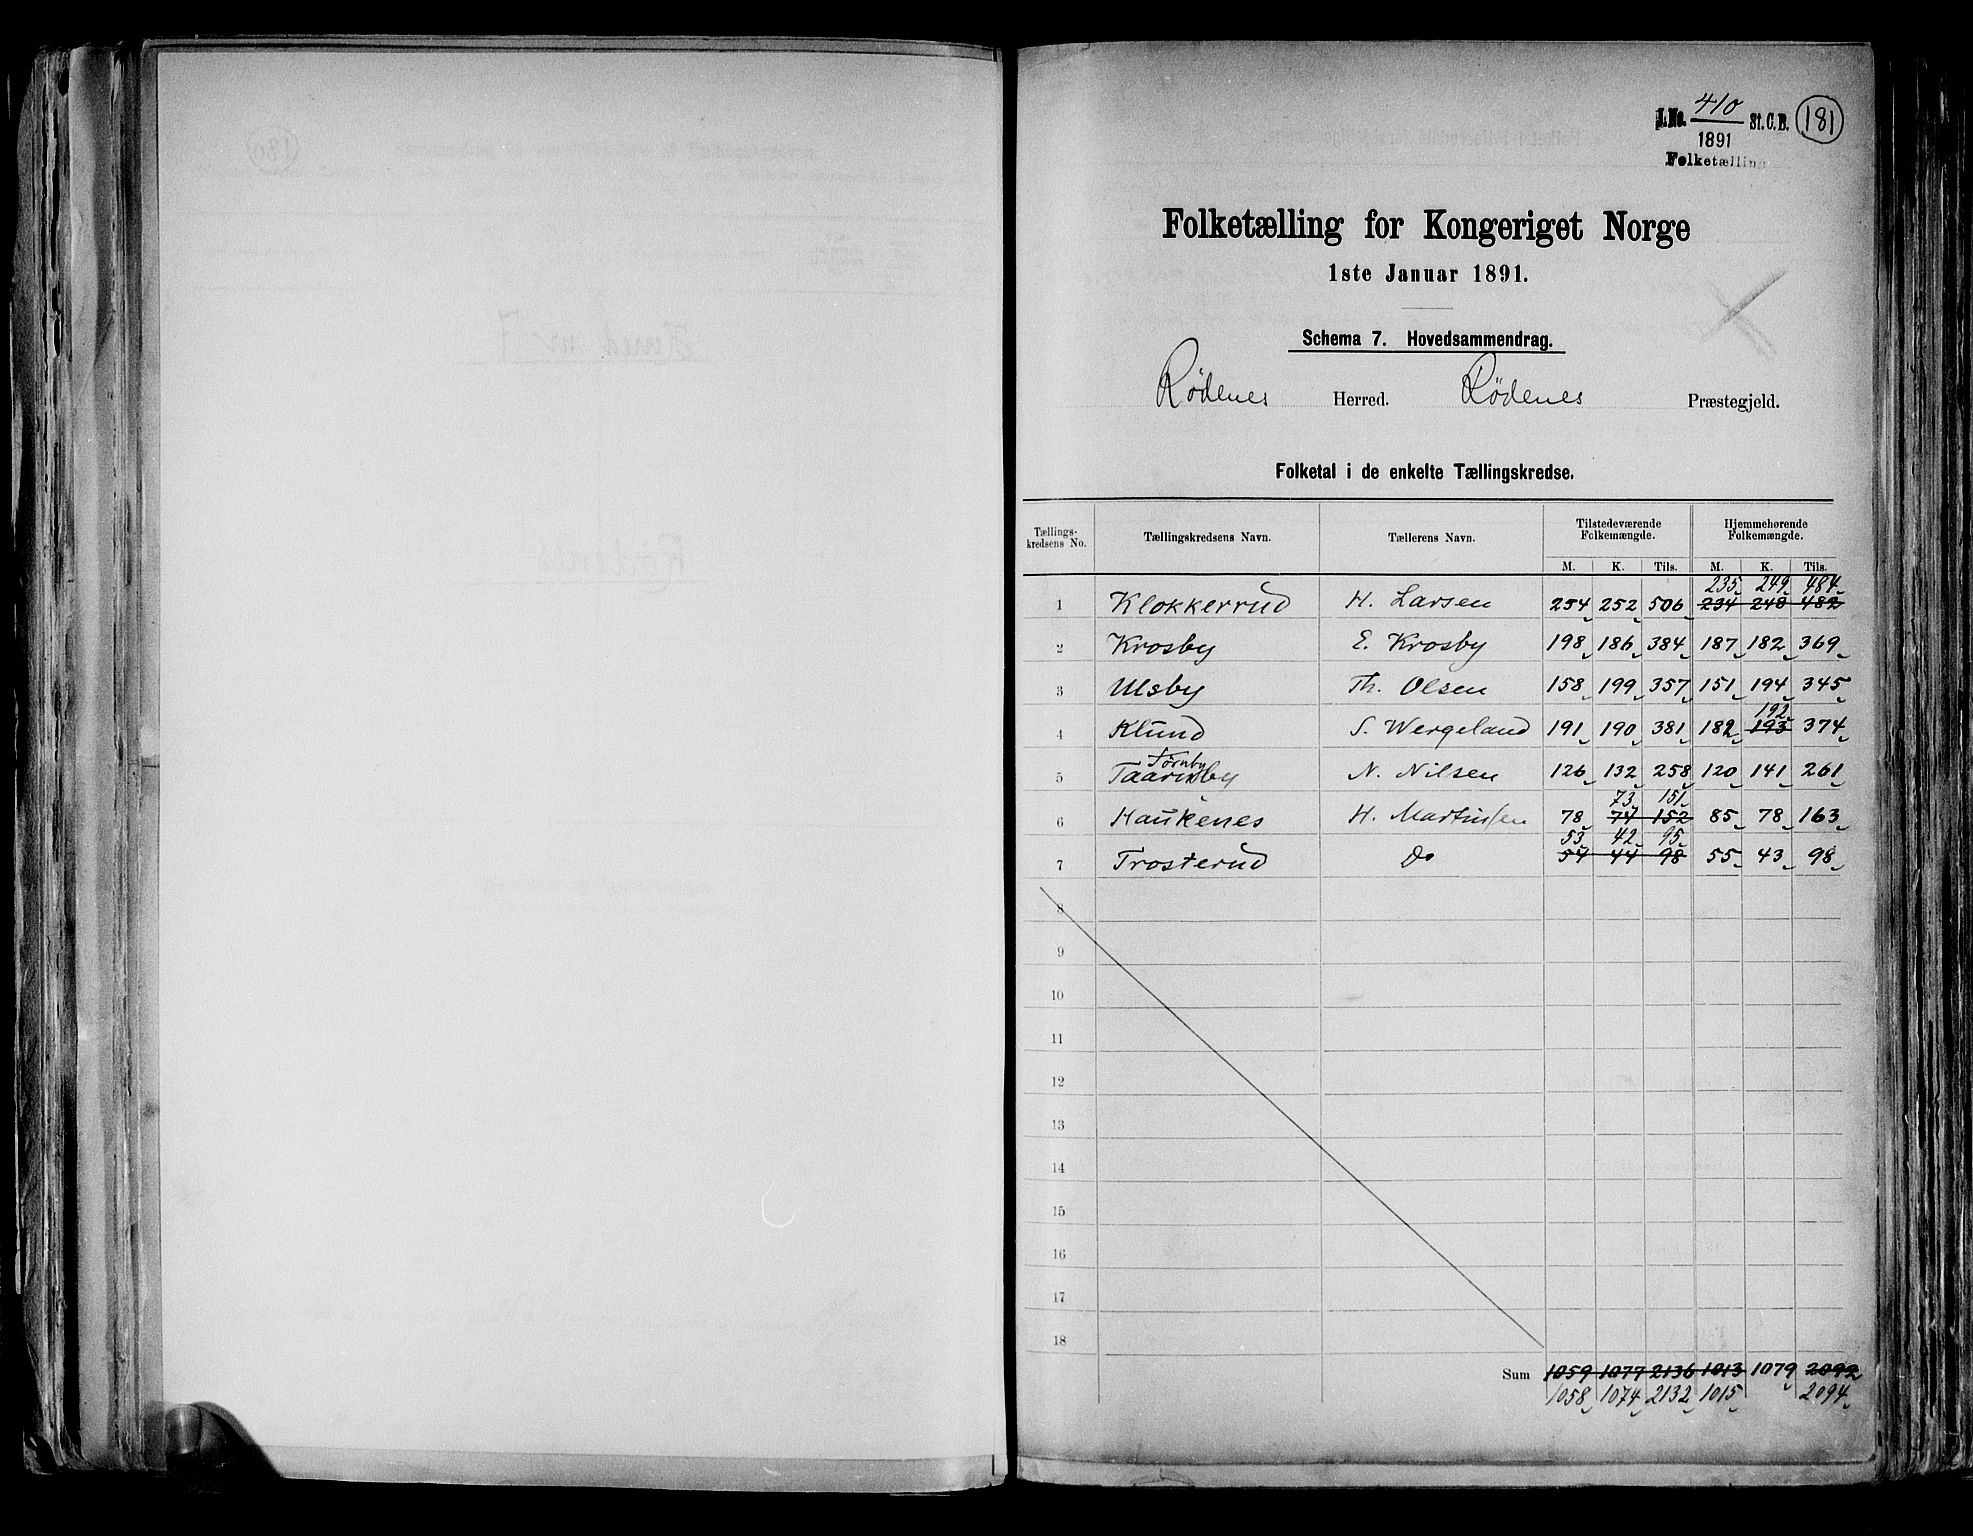 J.No. 410 St.C.B. 181
1891
Folketælling
Folketælling for Kongeriget Norge
1ste Januar 1891.
Schema 7. Hovedsammendrag.
Rødenes Herred. Rødenes Præstegjeld.
Folketal i de enkelte Tællingskredse.
Tællings-kredsens No. Tællingskredsens Navn. Tællerens Navn. Tilstedeværende Folkemængde. Hjemmehørende Folkemængde.
M. K. Tils. M. K. Tils.
235 249 484
1 Klokkerrud H. Larsen 254 252 506 234 248 482
2 Krosby E. Krosby 198 186 384 187 182 369
3 Ulsby Th. Olsen 158 199 357 151 194 345
192
4 Klund S. Wergeland 191 190 381 182 193 374
Tørnby
5 Taarnby N. Nilsen 126 132 258 120 141 261
73 151
6 Haukenes H. Martinsen 78 74 152 85 78 163
53 42 95
7 Trosterud Do 54 44 98 55 43 98
8
9
10
11
12
13
14
15
16
17
18
Sum 1059 1077 2136 1013 1079 2092
1058 1074 2132 1015 2094